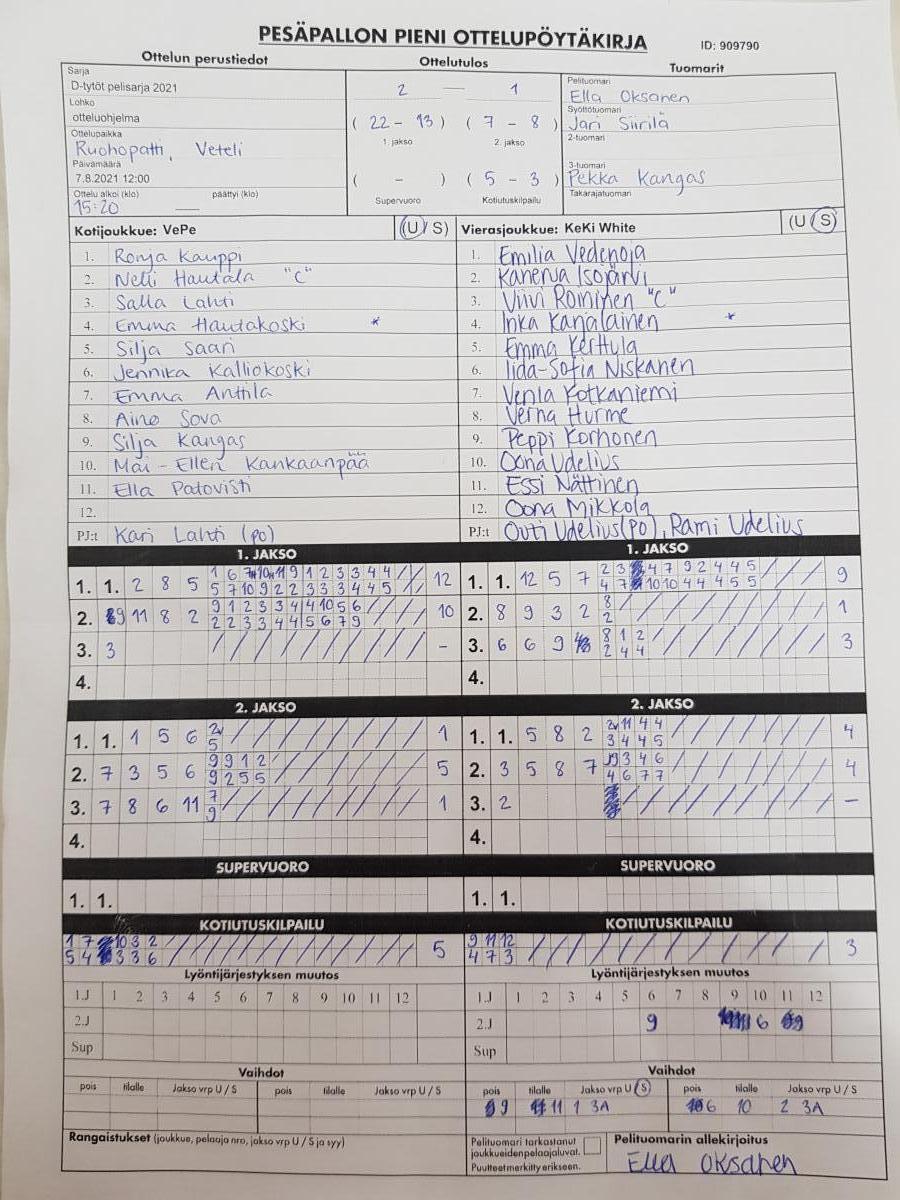 PESÄPALLON PIENI OTTELUPÖYTÄKIRJA
ID: 909790
Ottelun perustiedot
Ottelutulos
Tuomarit
Sarja
D-tytöt pelisarja 2021
Lohko
otteluohjelma
Ottelupaikka
Ruohopatti, Veteli
Päivämäärä
7.8.2021 12:00
Ottelu alkoi (klo) päättyi (klo)
15:20 —
2 — 1
( 22 - 13 ) ( 7 - 8 )
1. jakso 2. jakso
( - ) ( 5 - 3 )
Supervuoro Kotiutuskilpailu
Pelituomari
Ella Oksanen
Syöttötuomari
Jari Siirilä
2-tuomari
3-tuomari
Pekka Kangas
Takarajatuomari
Kotijoukkue: VePe (U / S)
1. Ronja Kauppi
2. Nelli Hautala "C"
3. Salla Lahti
4. Emma Hautakoski *
5. Silja Saari
6. Jennika Kalliokoski
7. Emma Anttila
8. Aino Sova
9. Silja Kangas
10. Mai-Ellen Kankaanpää
11. Ella Patovisti
12.
PJ:t Kari Lahti (po)
Vierasjoukkue: KeKi White (U / S)
1. Emilia Vedenoja
2. Kanerva Isojärvi
3. Viivi Roininen "C"
4. Inka Karjalainen *
5. Emma Kerttula
6. Iida-Sofia Niskanen
7. Venla Kotkaniemi
8. Verna Hurme
9. Peppi Korhonen
10. Oona Udelius
11. Essi Nättinen
12. Oona Mikkola
PJ:t Outi Udelius (po), Rami Udelius
1. JAKSO
1. 1. 2 8 5 12
2. 9 11 8 2 9 1 2 3 3 4 4 10 5 6 10
2 2 3 3 4 4 5 6 7 9
3. 3 -
4.
1. JAKSO
1. 1. 12 5 7 9
2. 8 9 3 2 8 1
2
3. 6 6 9 8 1 2 3
2 4 4
4.
2. JAKSO
1. 1. 1 5 6 1
5
2. 7 3 5 6 9 9 1 2 5
9 2 5 5
3. 7 8 6 11 7 1
9
4.
2. JAKSO
1. 1. 5 8 2 11 4 4 4
3 4 4 5
2. 3 5 8 7 9 3 4 6 4
4 6 7 7
3. 2 -
4.
SUPERVUORO
1. 1.
SUPERVUORO
1. 1.
KOTIUTUSKILPAILU
1 7 10 3 2 5
5 4 3 3 6
KOTIUTUSKILPAILU
9 11 12 3
4 7 3
Lyöntijärjestyksen muutos
1.J 1 2 3 4 5 6 7 8 9 10 11 12
2.J
Sup
Lyöntijärjestyksen muutos
1.J 1 2 3 4 5 6 7 8 9 10 11 12
2.J 9 6 9
Sup
Vaihdot
pois tilalle Jakso vrp U / S pois tilalle Jakso vrp U / S
Vaihdot
pois tilalle Jakso vrp U / S pois tilalle Jakso vrp U / S
9 11 1 3A 6 10 2 3A
Rangaistukset (joukkue, pelaaja nro, jakso vrp U / S ja syy)
Pelituomari tarkastanut
joukkueiden pelaajaluvat.
Puutteet merkitty erikseen.
Pelituomarin allekirjoitus
Ella Oksanen